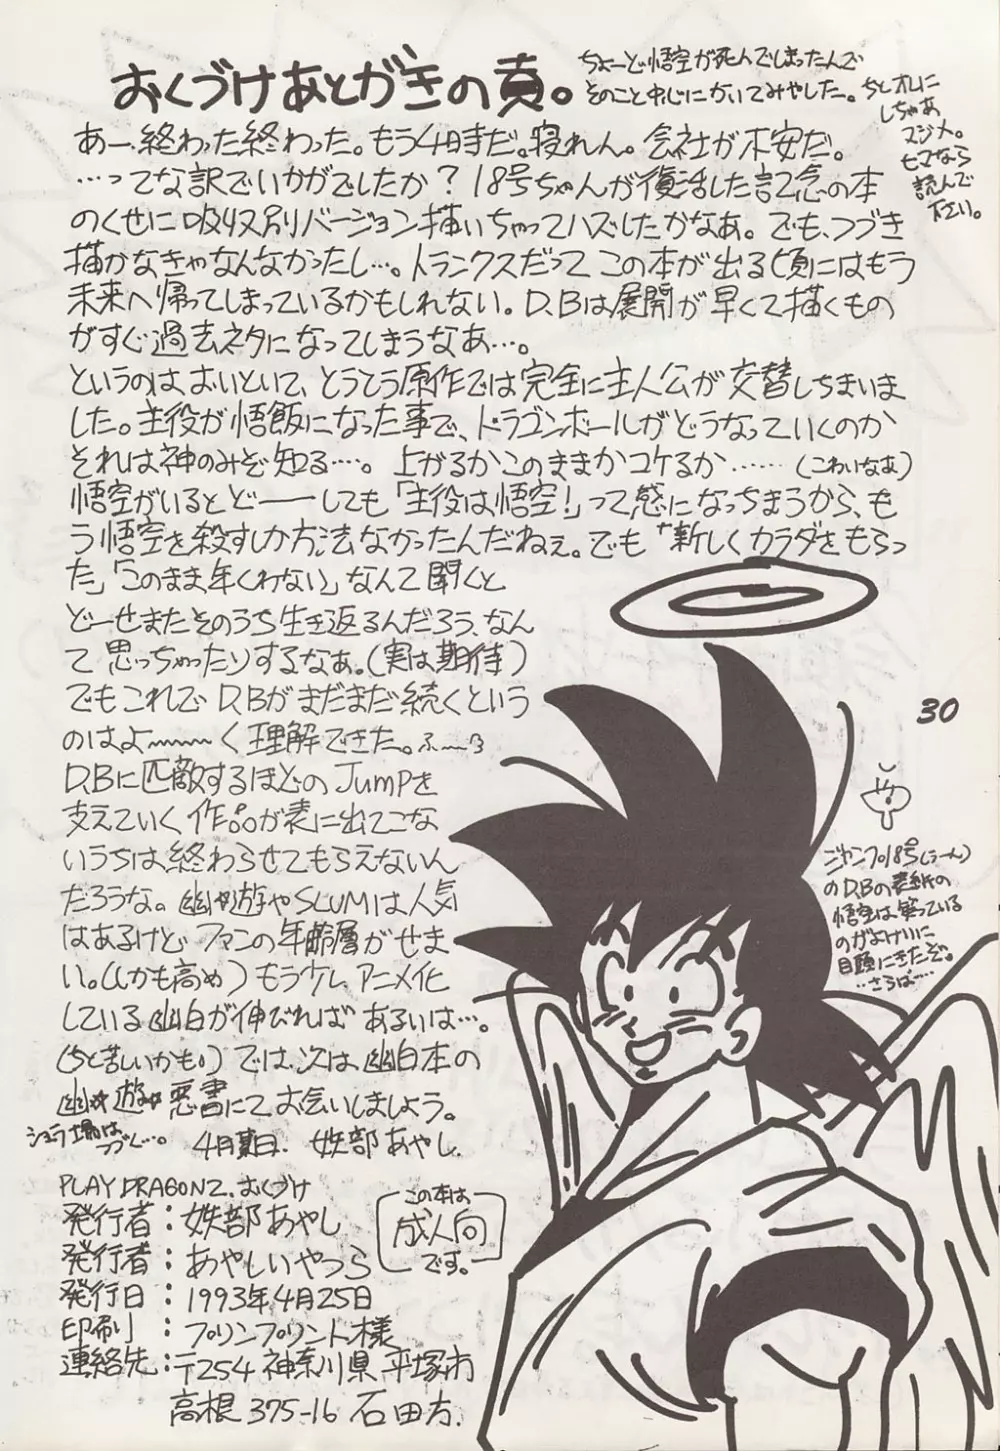 おくづけあとがきの頁。
ちょーど悟空が死んでしまったんで
そのこと中心にかいてみやした。ちとオレに
しちゃあ
マジメ。
ヒマなら
読んで
下さい。
あー、終わった終わった。もう4時だ。寝れん。会社が不安だ。
…ってな訳でいかがでしたか?18号ちゃんが復活した記念の本
のくせに吸収別バージョン描いちゃってハズしたかなあ。でも、つづき
描かなきゃなんなかったし…。トランクスだってこの本が出る頃にはもう
未来へ帰ってしまっているかもしれない。D.Bは展開が早くて描くもの
がすぐ過去ネタになってしまうなあ…。
というのは、おいといて、とうとう原作では完全に主人公が交替しちまいま
した。主役が悟飯になった事で、ドラゴンボールがどうなっていくのか
それは神のみぞ知る…。上がるかこのままかコケるか……(こわいなあ)
悟空がいるとどーーしても「主役は悟空!」って感になっちまうから、も
う悟空を殺すしか方法なかったんだねぇ。でも「新しくカラダをもらっ
た」「このまま年くわない」なんて聞くと
どーせまたそのうち生き返るんだろう、なん
て思っちゃったりするなあ。(実は期待)
でもこれでD.Bがまだまだ続くという
のはよ〜〜〜く理解できた。ふーっ
D.Bに匹敵するほどのJumpを
支えていく作品が表に出てこな
いうちは、終わらせてもらえないん
だろうな。幽や遊やSLUMは人気
はあるけどファンの年齢層がせま
い。(しかも高め)もうすぐアニメ化
している幽白が伸びればあるいは…。
(ちと苦しいかも。)では、次は幽白本の
幽☆遊☆悪書にてお会いしましょう。
4月某日. 妖部あやし.
30
ジャンプ18号(うーん)
のD.Bの表紙の
悟空は、笑っている
のがよけいに
目頭にきたぞ。
…さらば……
PLAY DRAGON2.おくづけ
発行者:妖部あやし
発行者:あやしいやつら
発行日:1993年4月25日
印刷:プリンプリント様
連絡先:〒254 神奈川県平塚市
高根375-16 石田方.
この本は
成人向
です。